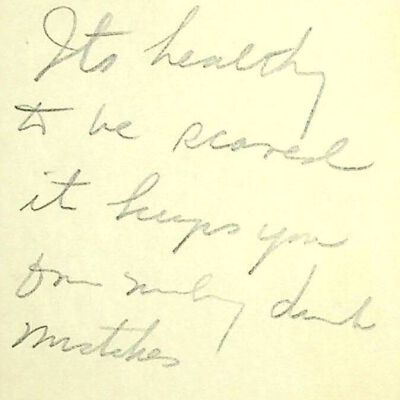 Its healthy
to be scared
it keeps you
from making dumb
mistakes